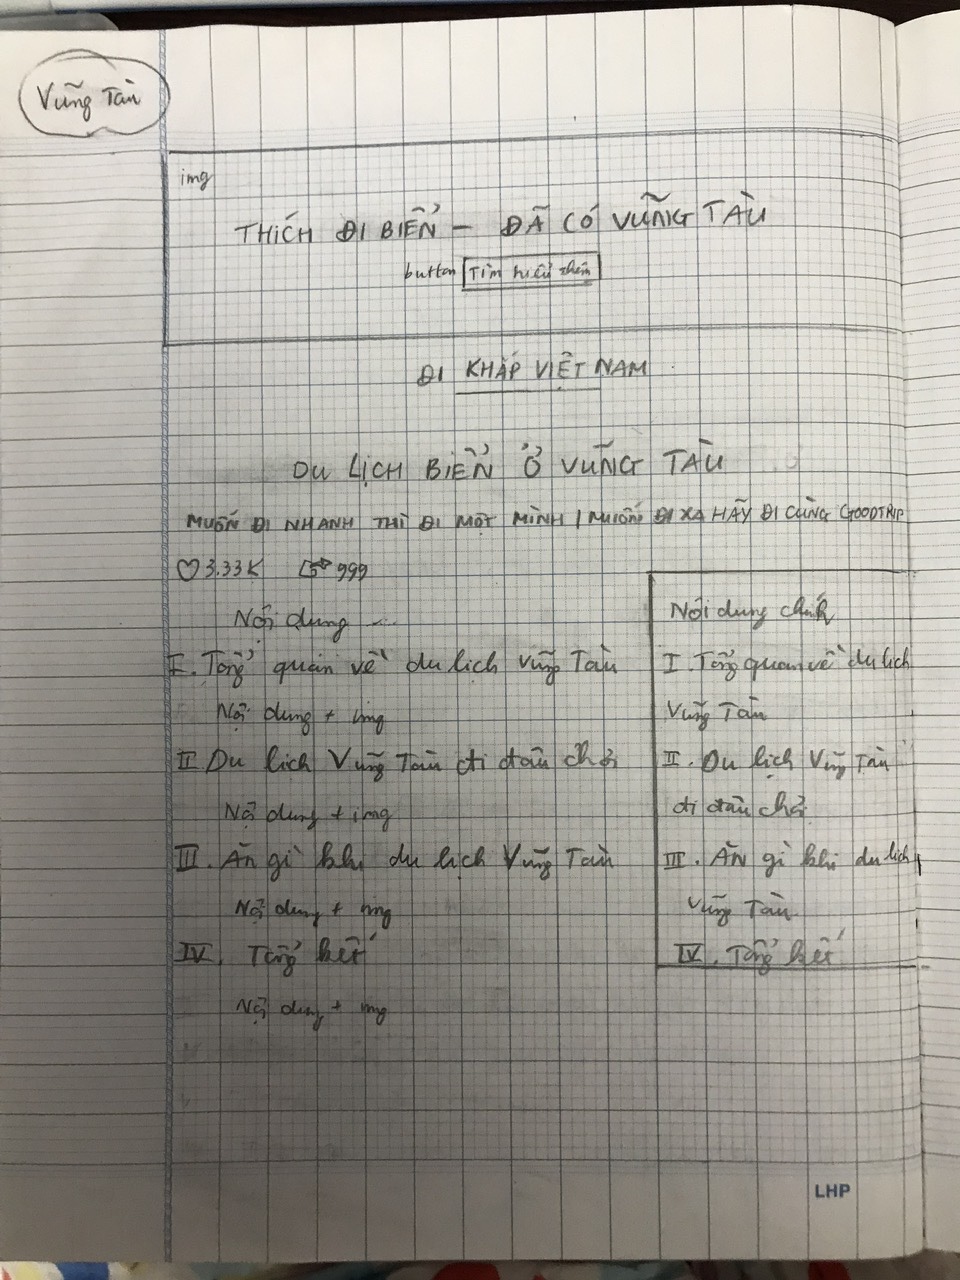 Vũng Tàu
img
THÍCH ĐI BIỂN – ĐÃ CÓ VŨNG TÀU
button Tìm hiểu thêm
ĐI KHẮP VIỆT NAM
DU LỊCH BIỂN Ở VŨNG TÀU
MUỐN ĐI NHANH THÌ ĐI MỘT MÌNH / MUỐN ĐI XA HÃY ĐI CÙNG GOODTRIP
♡ 3.33K 999
Nội dung ...
I. Tổng quan về du lịch Vũng Tàu
Nội dung + img
II Du lịch Vũng Tàu đi đâu chơi
Nội dung + img
III. Ăn gì khi du lịch Vũng Tàu
Nội dung + img
IV. Tổng kết
Nội dung + img
Nội dung chính
I. Tổng quan về du lịch
Vũng Tàu
II. Du lịch Vũng Tàu
đi đâu chơi
III. Ăn gì khi du lịch
Vũng Tàu
IV. Tổng kết
LHP